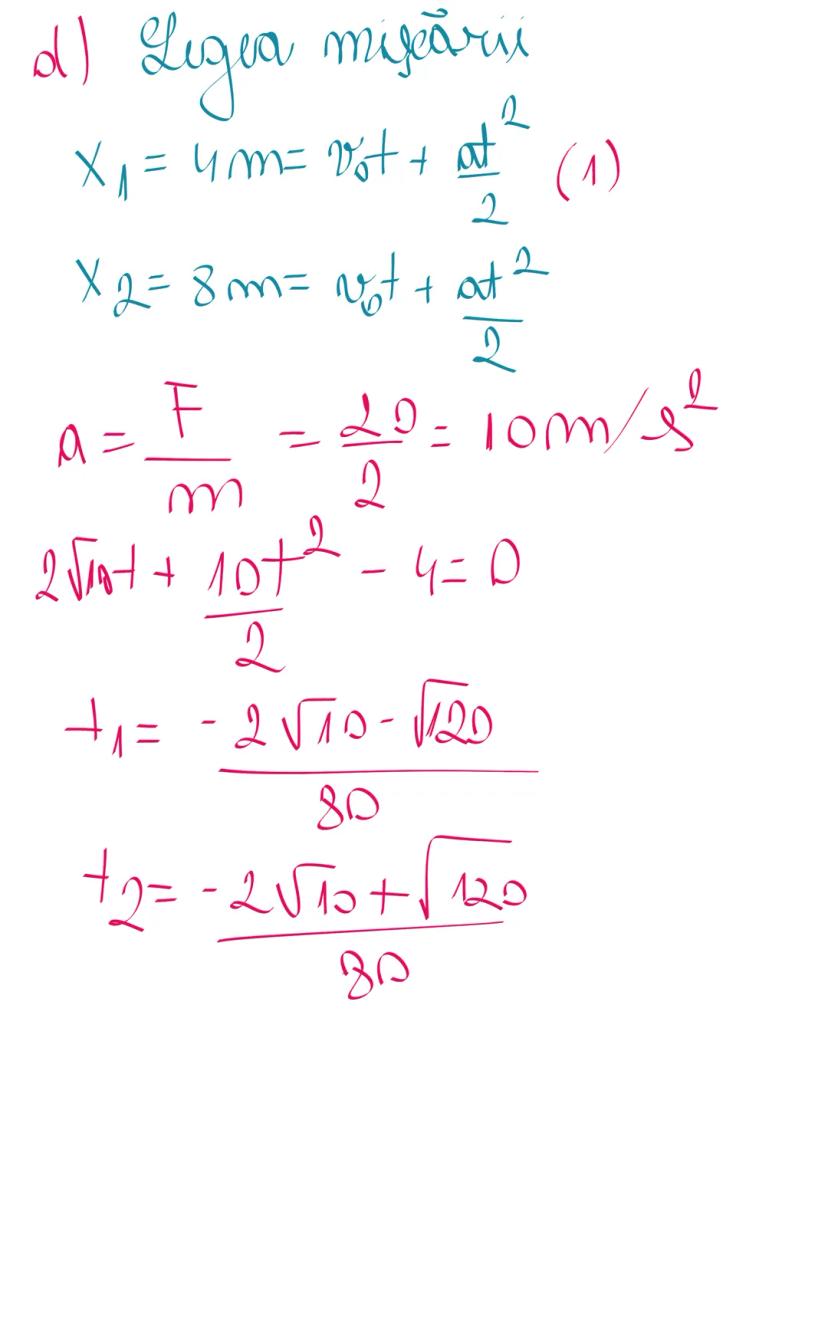 d) Legea mișcării
x₁ = 4m = v₀t + at²/2 (1)
x₂ = 8m = v₀t + at²/2
a = F/m = 20/2 = 10m/s²
2√10t + 10t²/2 - 4 = 0
t₁ = -2√10 - √120/80
t₂ = -2√10 + √120/80